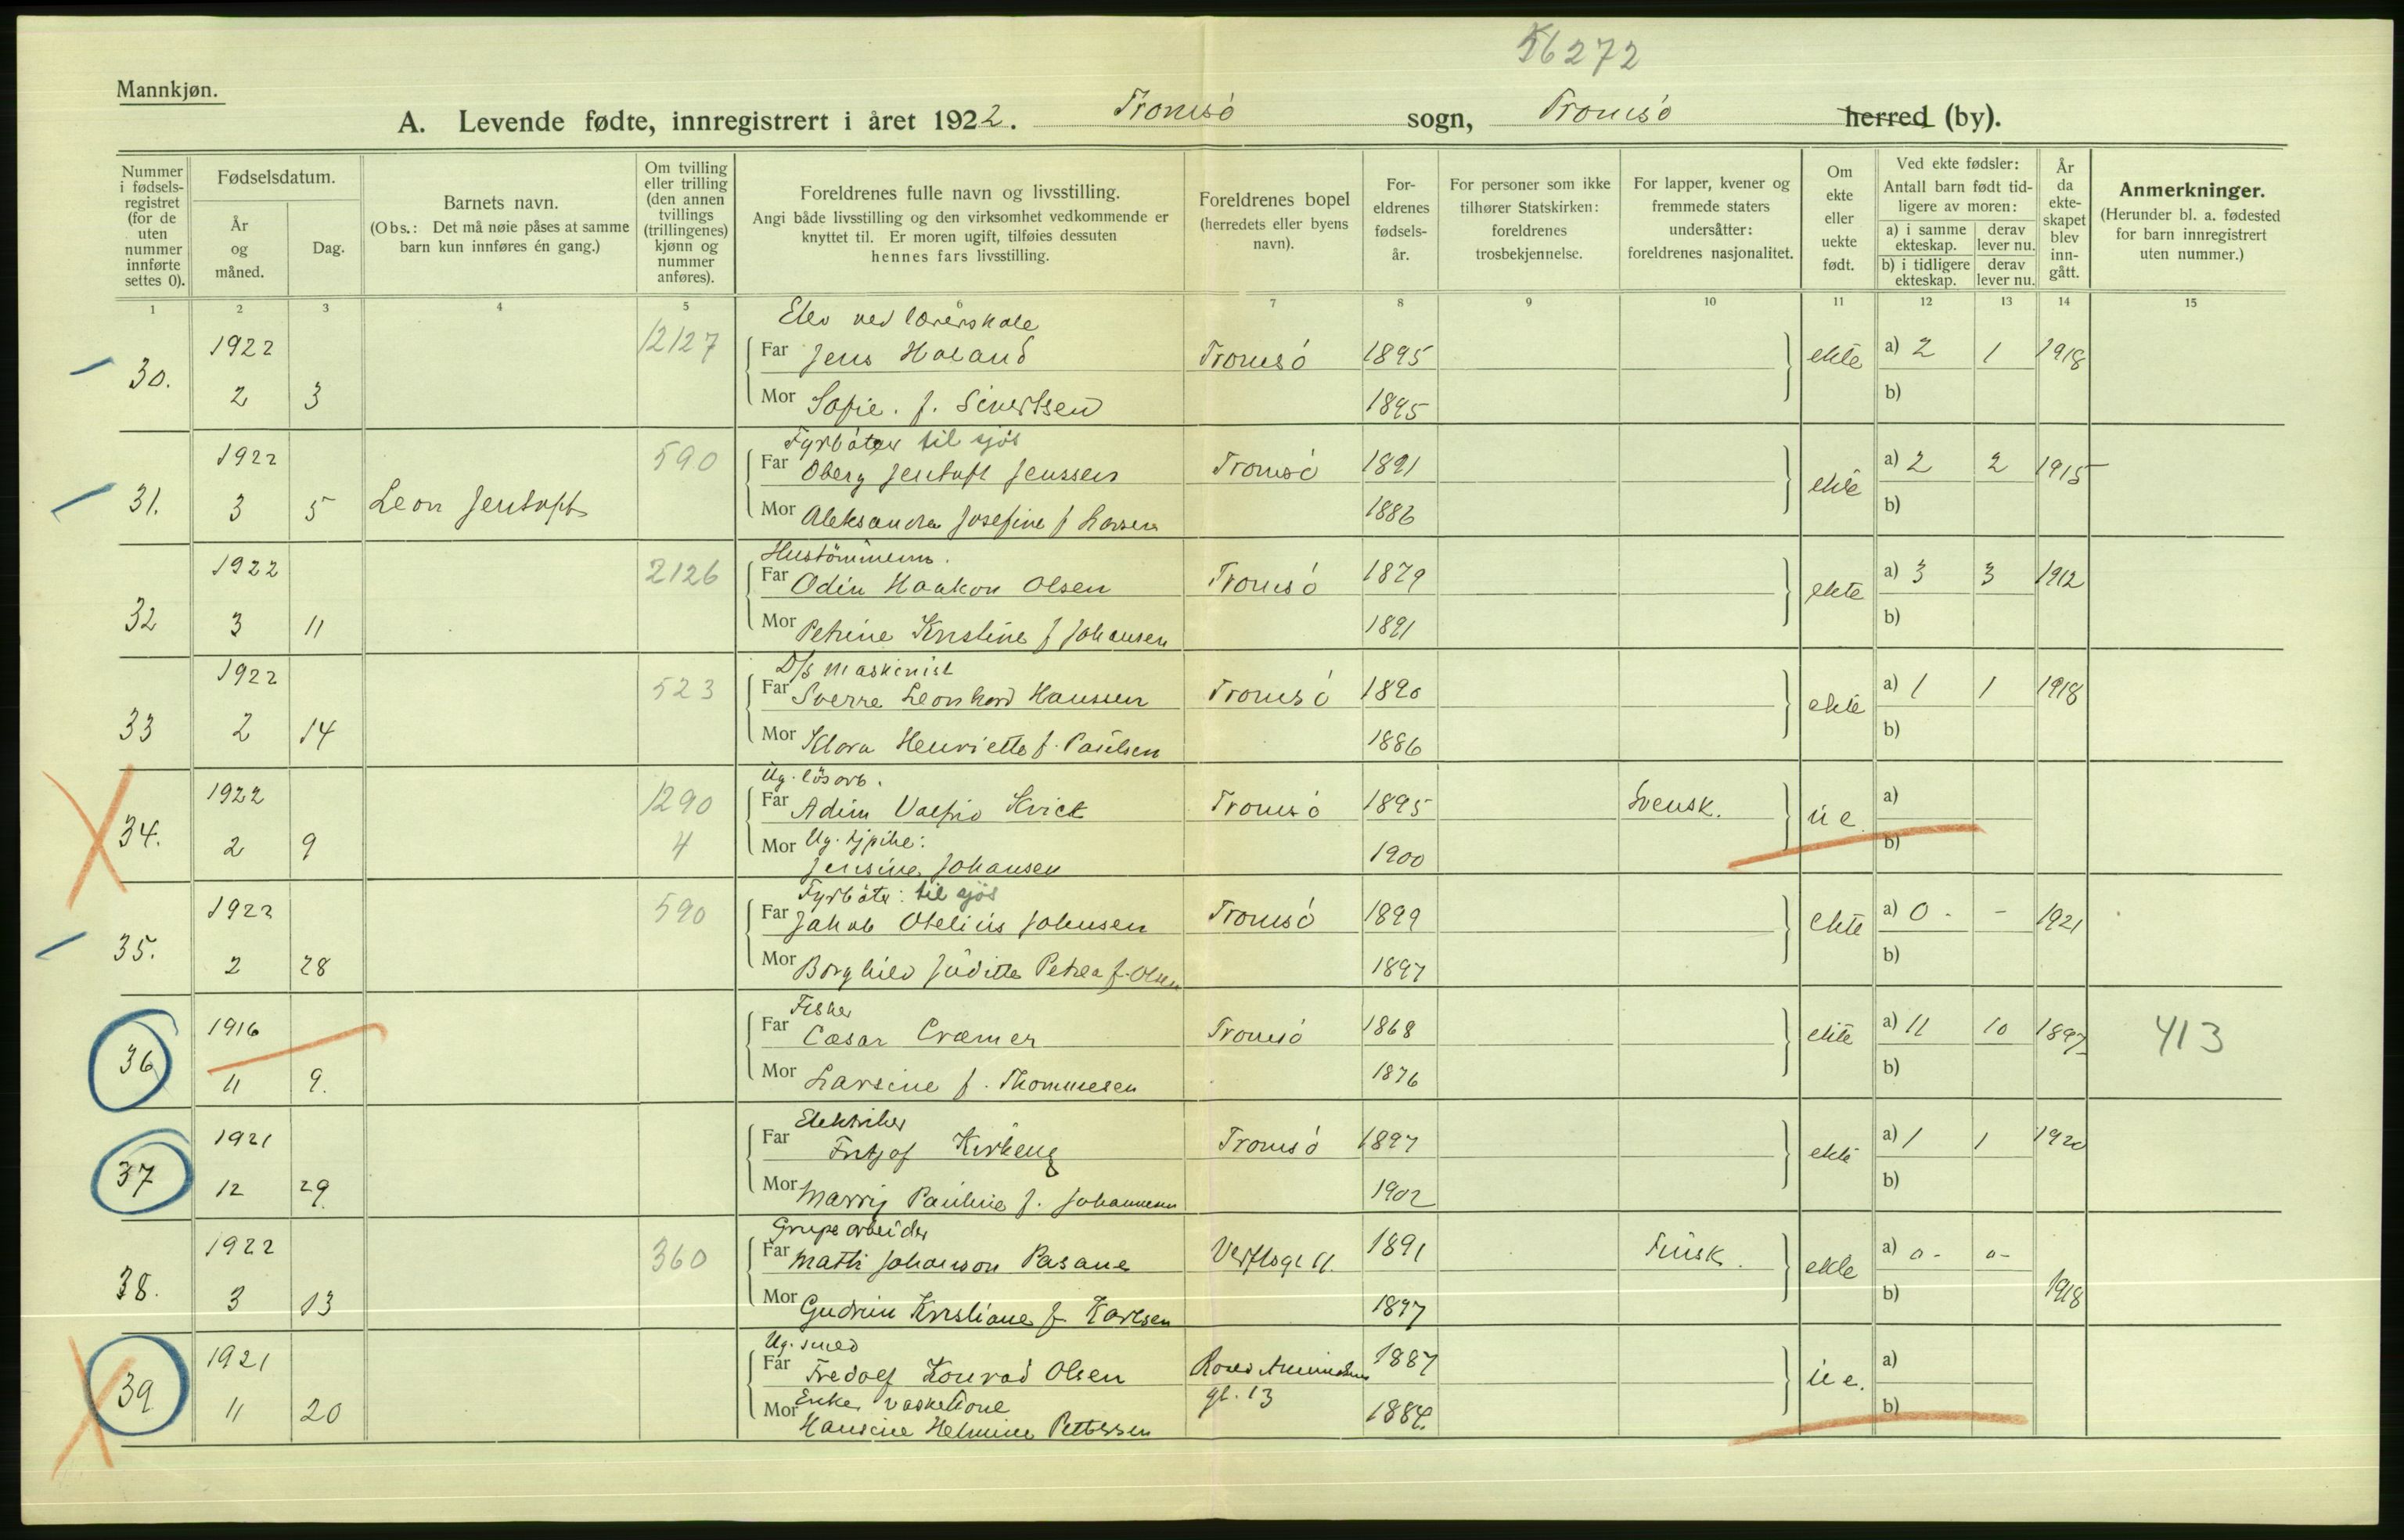 56272
Mannkjøn.
A. Levende fødte, innregistrert i året 1922. Tromsö sogn, Tromsö herred (by).
Nummer i fødsels-registret (for de uten nummer innførte settes 0).
Fødselsdatum.
År og måned.
Dag.
Barnets navn.
(Obs.: Det må nøie påses at samme barn kun innføres én gang.)
Om tvilling eller trilling (den annen tvillings (trillingenes) kjønn og nummer anføres).
Foreldrenes fulle navn og livsstilling.
Angi både livsstilling og den virksomhet vedkommende er knyttet til. Er moren ugift, tilføies dessuten hennes fars livsstilling.
Foreldrenes bopel (herredets eller byens navn).
For-eldrenes fødsels-år.
For personer som ikke tilhører Statskirken: foreldrenes trosbekjennelse.
For lapper, kvener og fremmede staters undersåtter: foreldrenes nasjonalitet.
Om ekte eller uekte født.
Ved ekte fødsler:
Antall barn født tid-ligere av moren:
a) i samme ekteskap. derav lever nu.
b) i tidligere ekteskap. derav lever nu.
År da ekte-skapet blev inn-gått.
Anmerkninger.
(Herunder bl. a. fødested for barn innregistrert uten nummer.)
1 2 3 4 5 6 7 8 9 10 11 12 13 14 15
Elev ved lærerskole
30. 1922 12127 Far Jens Haland Tromsö 1895 ekte a) 2 1 1918
2 3 Mor Sofie. f. Sivertsen 1895 b)
Fyrböter til sjös
31. 1922 590 Far Oberg Jentoft Jenssen Tromsö 1891 ekte a) 2 2 1915
3 5 Leon Jentoft Mor Aleksandra Josefine f Larsen 1886 b)
Hustömmerm.
32 1922 2126 Far Odin Haakon Olsen Tromsö 1879 ekte a) 3 3 1912
3 11 Mor Petrine Kristine f Johansen 1891 b)
D/s maskinist
33 1922 523 Far Sverre Leonhard Hanssen Tromsö 1890 ekte a) 1 1 1918
2 14 Mor Klara Henriette f. Paulsen 1886 b)
Ug. lösarb.
34. 1922 1290 Far Adim Valfrid Kvick Tromsö 1895 Svensk. u e. a)
2 9 4 Mor Ug. tjpike: 1900 b)
Jensine Johansen
Fyrböter: til sjös
35. 1922 590 Far Jakob Otelius Johnsen Tromsö 1899 ekte a) 0 - - 1921
2 28 Mor Borghild Juditte Petrea f. Olsen 1897 b)
Fisker
36 1916 Far Cæsar Cræmer Tromsö 1868 ekte a) 11 10 1897 413
11 9. Mor Larsine f. Thommesen 1876 b)
Elektriker
37 1921 Far Fritjof Kirkeng Tromsö 1897 ekte a) 1 1 1920
12 29. Mor Marrij Pauline f. Johannesen 1902 b)
Grupearbeider
38. 1922 360 Far Matti Johanson Pasane Verftsgt 11. 1891 Finsk. ekte a) 0 - 0 -
3 13 Mor Gudrun Kristiane f Karlsen 1897 b) 1918
Ug. smed
39 1921 Far Fredolf Konrad Olsen Roald Amundsens 1887 u e. a)
11 20 Mor Enke vaskekone gt. 13 1884. b)
Hansine Helmine Pettersen